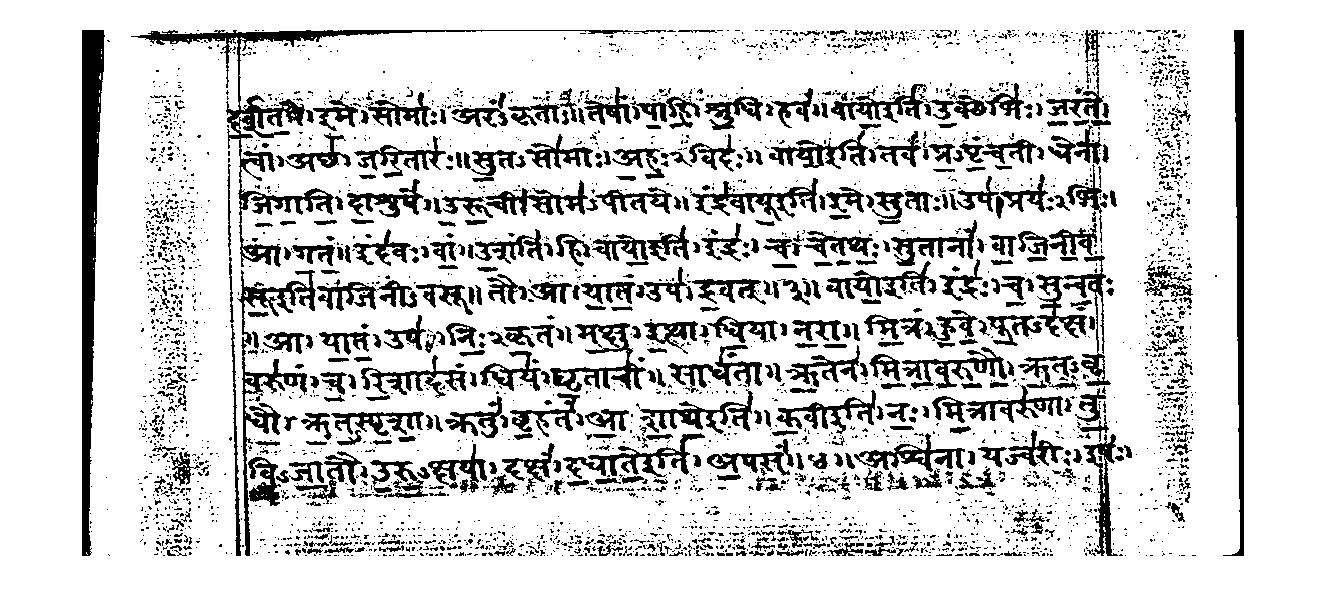 द॒र्श॒त॒ । इ॒मे । सोमाः॑ । अरं॑ऽकृताः ॥ तेषां॑ । पा॒हि॒ । श्रु॒धि । हवं॑ ॥ वायो॒ इति॑ । उ॒क्थेभिः॑ । ज॒रं॒ते॒
त्वां । अच्छ॑ । ज॒रि॒तारः॑ ॥ सु॒तऽसो॑माः । अ॒हः॒ऽविदः॑ ॥ वायो॒ इति॑ । तव॑ । प्र॒ऽपृं॒च॒ती । धेना॑ ।
जि॒गा॒ति॒ । दा॒शुषे॑ ॥ उ॒रू॒ची । सोम॑ऽपीतये ॥ इंद्र॑वायू॒ इति॑ । इ॒मे । सु॒ताः ॥ उप॑ । प्रयः॑ऽभिः ।
आ । ग॒तं॒ ॥ इंद॑वः । वां॒ ॥ उ॒शंति॑ । हि । वायो॒ इति॑ । इंद्रः॑ । च॒ । चे॒त॒थः॒ । सु॒तानां॑ । वा॒जि॒नी॒व॒
सू॒ इति॑ वाजिनीऽवसू ॥ तौ । आ । या॒तं॒ । उप॑ । द्र॒वत् ॥ ३ ॥ वायो॒ इति॑ । इंद्रः॑ । च॒ । सु॒न्व॒तः
। आ । या॒तं॒ । उप॑ । निः॒ऽकृ॒तं ॥ म॒क्षु । इ॒त्था । धि॒या । न॒रा॒ ॥ मि॒त्रं । हु॒वे॒ । पू॒तऽद॑क्षं ।
वरु॑णं । च॒ । रि॒शाद॑सं । धियं॑ । घृ॒ताचीं॑ । सार्धं॑ता ॥ ऋ॒तेन॑ । मि॒त्रा॒व॒रु॒णौ॒ । ऋ॒त॒ऽवृ॒
धौ॒ । ऋ॒त॒ऽस्पृ॒शा॒ ॥ क्रतुं॑ । बृ॒हंतं॑ । आ॒शा॒थे॒ इति॑ ॥ क॒वी इति॑ । नः॒ । मि॒त्रावरु॑णा । तु॒
वि॒ऽजा॒तौ । उ॒रु॒ऽक्षया॑ । दक्षं॑ । द॒धा॒ते॒ इति॑ । अ॒पसं॑ ॥ ४ ॥ अश्वि॑ना । यज्व॑रीः । इषः॑ ।